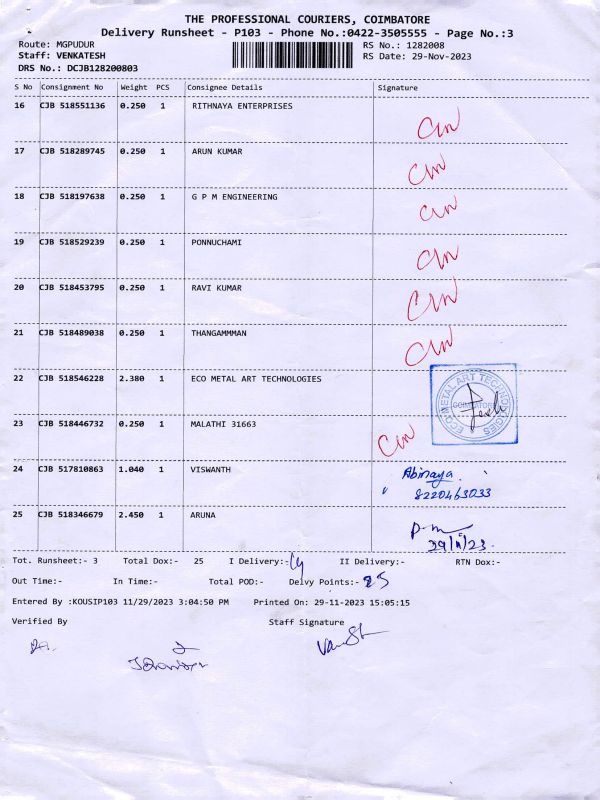 THE PROFESSIONAL COURIERS, COIMBATORE
Delivery Runsheet - P103 - Phone No.:0422-3505555 - Page No.:3
Route: MGPUDUR RS No.: 1282008
Staff: VENKATESH RS Date: 29-Nov-2023
DRS No.: DCJB128200803
S No Consignment No Weight PCS Consignee Details Signature
16 CJB 518551136 0.250 1 RITHNAYA ENTERPRISES
17 CJB 518289745 0.250 1 ARUN KUMAR
18 CJB 518197638 0.250 1 G P M ENGINEERING
19 CJB 518529239 0.250 1 PONNUCHAMI
20 CJB 518453795 0.250 1 RAVI KUMAR
21 CJB 518489038 0.250 1 THANGAMMMAN
22 CJB 518546228 2.380 1 ECO METAL ART TECHNOLOGIES
ECO METAL ART TECHNOLOGIES COIMBATORE
23 CJB 518446732 0.250 1 MALATHI 31663
24 CJB 517810863 1.040 1 VISWANTH Abinaya
8220463033
25 CJB 518346679 2.450 1 ARUNA
29/11/23
Tot. Runsheet:- 3 Total Dox:- 25 I Delivery:- II Delivery:- RTN Dox:-
Out Time:- In Time:- Total POD:- Delvy Points:- 25
Entered By :KOUSIP103 11/29/2023 3:04:50 PM Printed On: 29-11-2023 15:05:15
Verified By Staff Signature